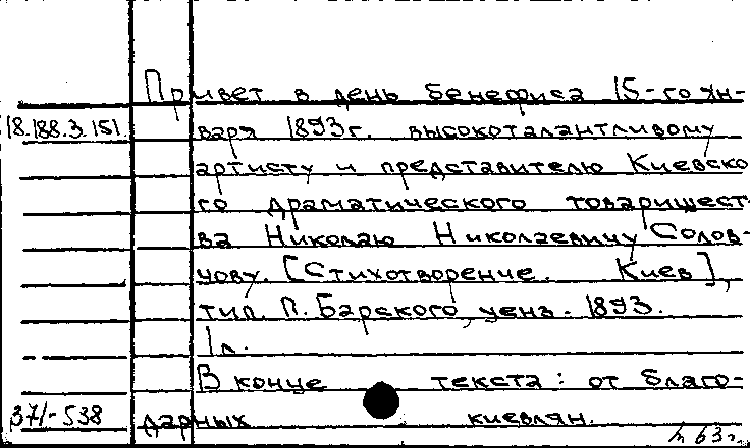 Привет в день бенефиса 15-го ян-
18.188.3.151. варя 1893г. высокоталантливому
артисту и представителю Киевско
го драматического товарищест-
ва Николаю Николаевичу Солов-
цову. [Стихотворение. Киев],
тип. П. Барского, ценз. 1893.
1 л.
В конце текста: от благо-
371-538 дарных киевлян.
63г.